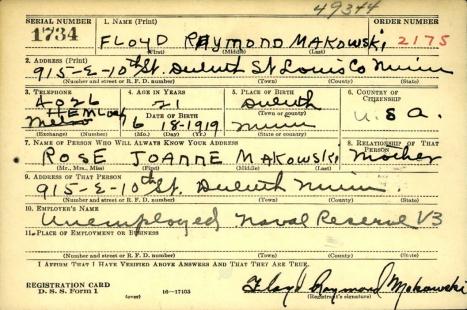 49344
SERIAL NUMBER 1. NAME (Print) ORDER NUMBER
1734 FLOYD RAYMOND MAKOWSKI 2175
(First) (Middle) (Last)
2. ADDRESS (Print)
915-E-10th St. Duluth St Louis Co Minn
(Number and street or R. F. D. number) (Town) (County) (State)
3. TELEPHONE 4. AGE IN YEARS 5. PLACE OF BIRTH 6. COUNTRY OF CITIZENSHIP
4026 21 Duluth
HEMLOCK DATE OF BIRTH (Town or county) U S A.
6 18-1919 Minn
(Exchange) (Number) (Mo.) (Day) (Yr.) (State or country)
7. NAME OF PERSON WHO WILL ALWAYS KNOW YOUR ADDRESS 8. RELATIONSHIP OF THAT PERSON
ROSE JOANNE MAKOWSKI Mother
(Mr., Mrs., Miss) (First) (Middle) (Last)
9. ADDRESS OF THAT PERSON
915-E-10th St. Duluth Minn.
(Number and street or R. F. D. number) (Town) (County) (State)
10. EMPLOYER'S NAME
Unemployed Naval Reserve V3
11. PLACE OF EMPLOYMENT OR BUSINESS
(Number and street or R. F. D. number) (Town) (County) (State)
I AFFIRM THAT I HAVE VERIFIED ABOVE ANSWERS AND THAT THEY ARE TRUE.
REGISTRATION CARD
D. S. S. Form 1 (over) 16—17105 Floyd Raymond Makowski
(Registrant's signature)